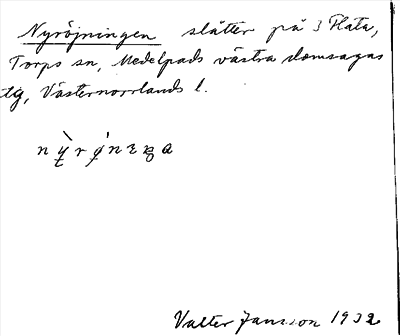 Nyröjningen slåtter på 3 Flata,
Torps sn, Medelpads västra domsagas
tg, Västernorrlands l.
Valter Jansson 1932